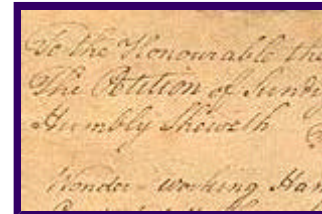 To the Honourable the
The Petition of Sundry
Humbly Sheweth
Wonder-working Han